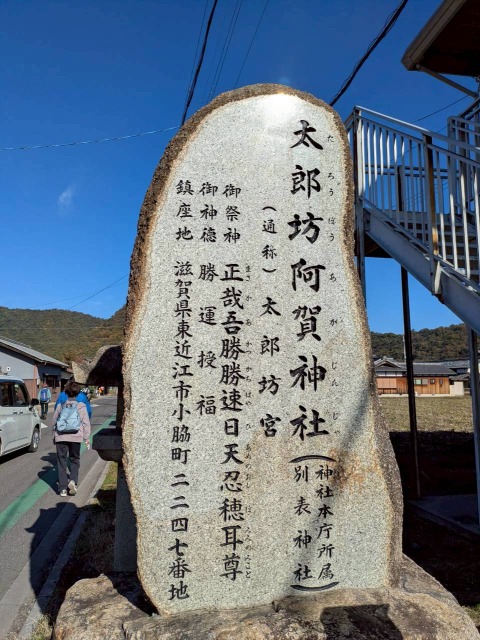 太郎坊阿賀神社
たろうぼうあがじんじゃ
(神社本庁所属
別表神社)
(通称)太郎坊宮
御祭神 正哉吾勝勝速日天忍穂耳尊
御神徳 勝運授福
鎮座地 滋賀県東近江市小脇町二二四七番地